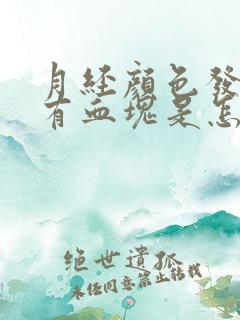 月經顏色發
有血塊是怎
绝世遺孤
未经同意禁止转载